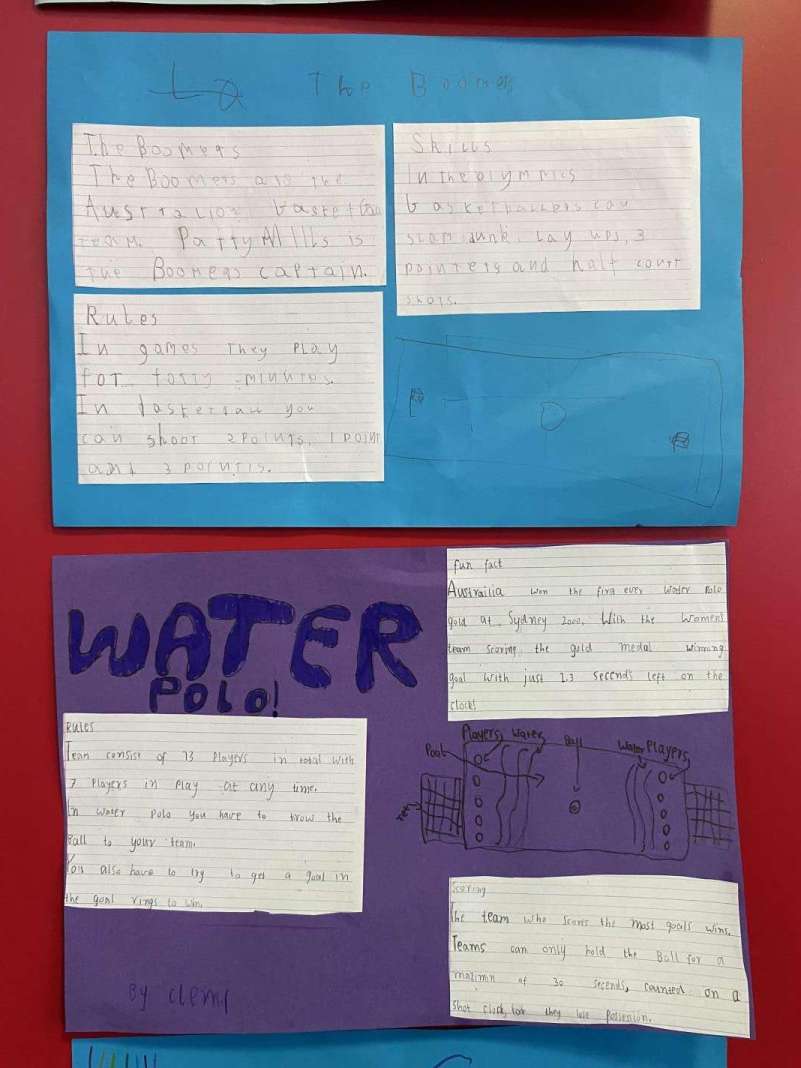 The Boomers
The Boomers
The Boomers are the
Australion basketba
team. Patty Mills is
the Boomers captain.
Skills
In the olymmics
basketballers can
slam dunk, lay ups, 3
pointers and half court
shots.
Rules
In games they play
for forty minutes.
In basketball you
can shoot 2 points, 1 point
and 3 points.
WATER
POLO!
fun fact
Austrailia won the first ever water polo
gold at Sydney 2000. With the women's
team scoring the gold medal winning
goal with just 1.3 seconds left on the
clock!
Rules
Team consist of 13 players in total with
7 players in play at any time.
In water polo you have to trow the
Ball to your team.
You also have to try to get a goal in
the goal rings to win.
Players Water Ball Water Players
Pool
net
Scoring
The team who scores the most goals wins.
Teams can only hold the Ball for a
of 30 seconds, counted on a
shot clock, they lose
By clem